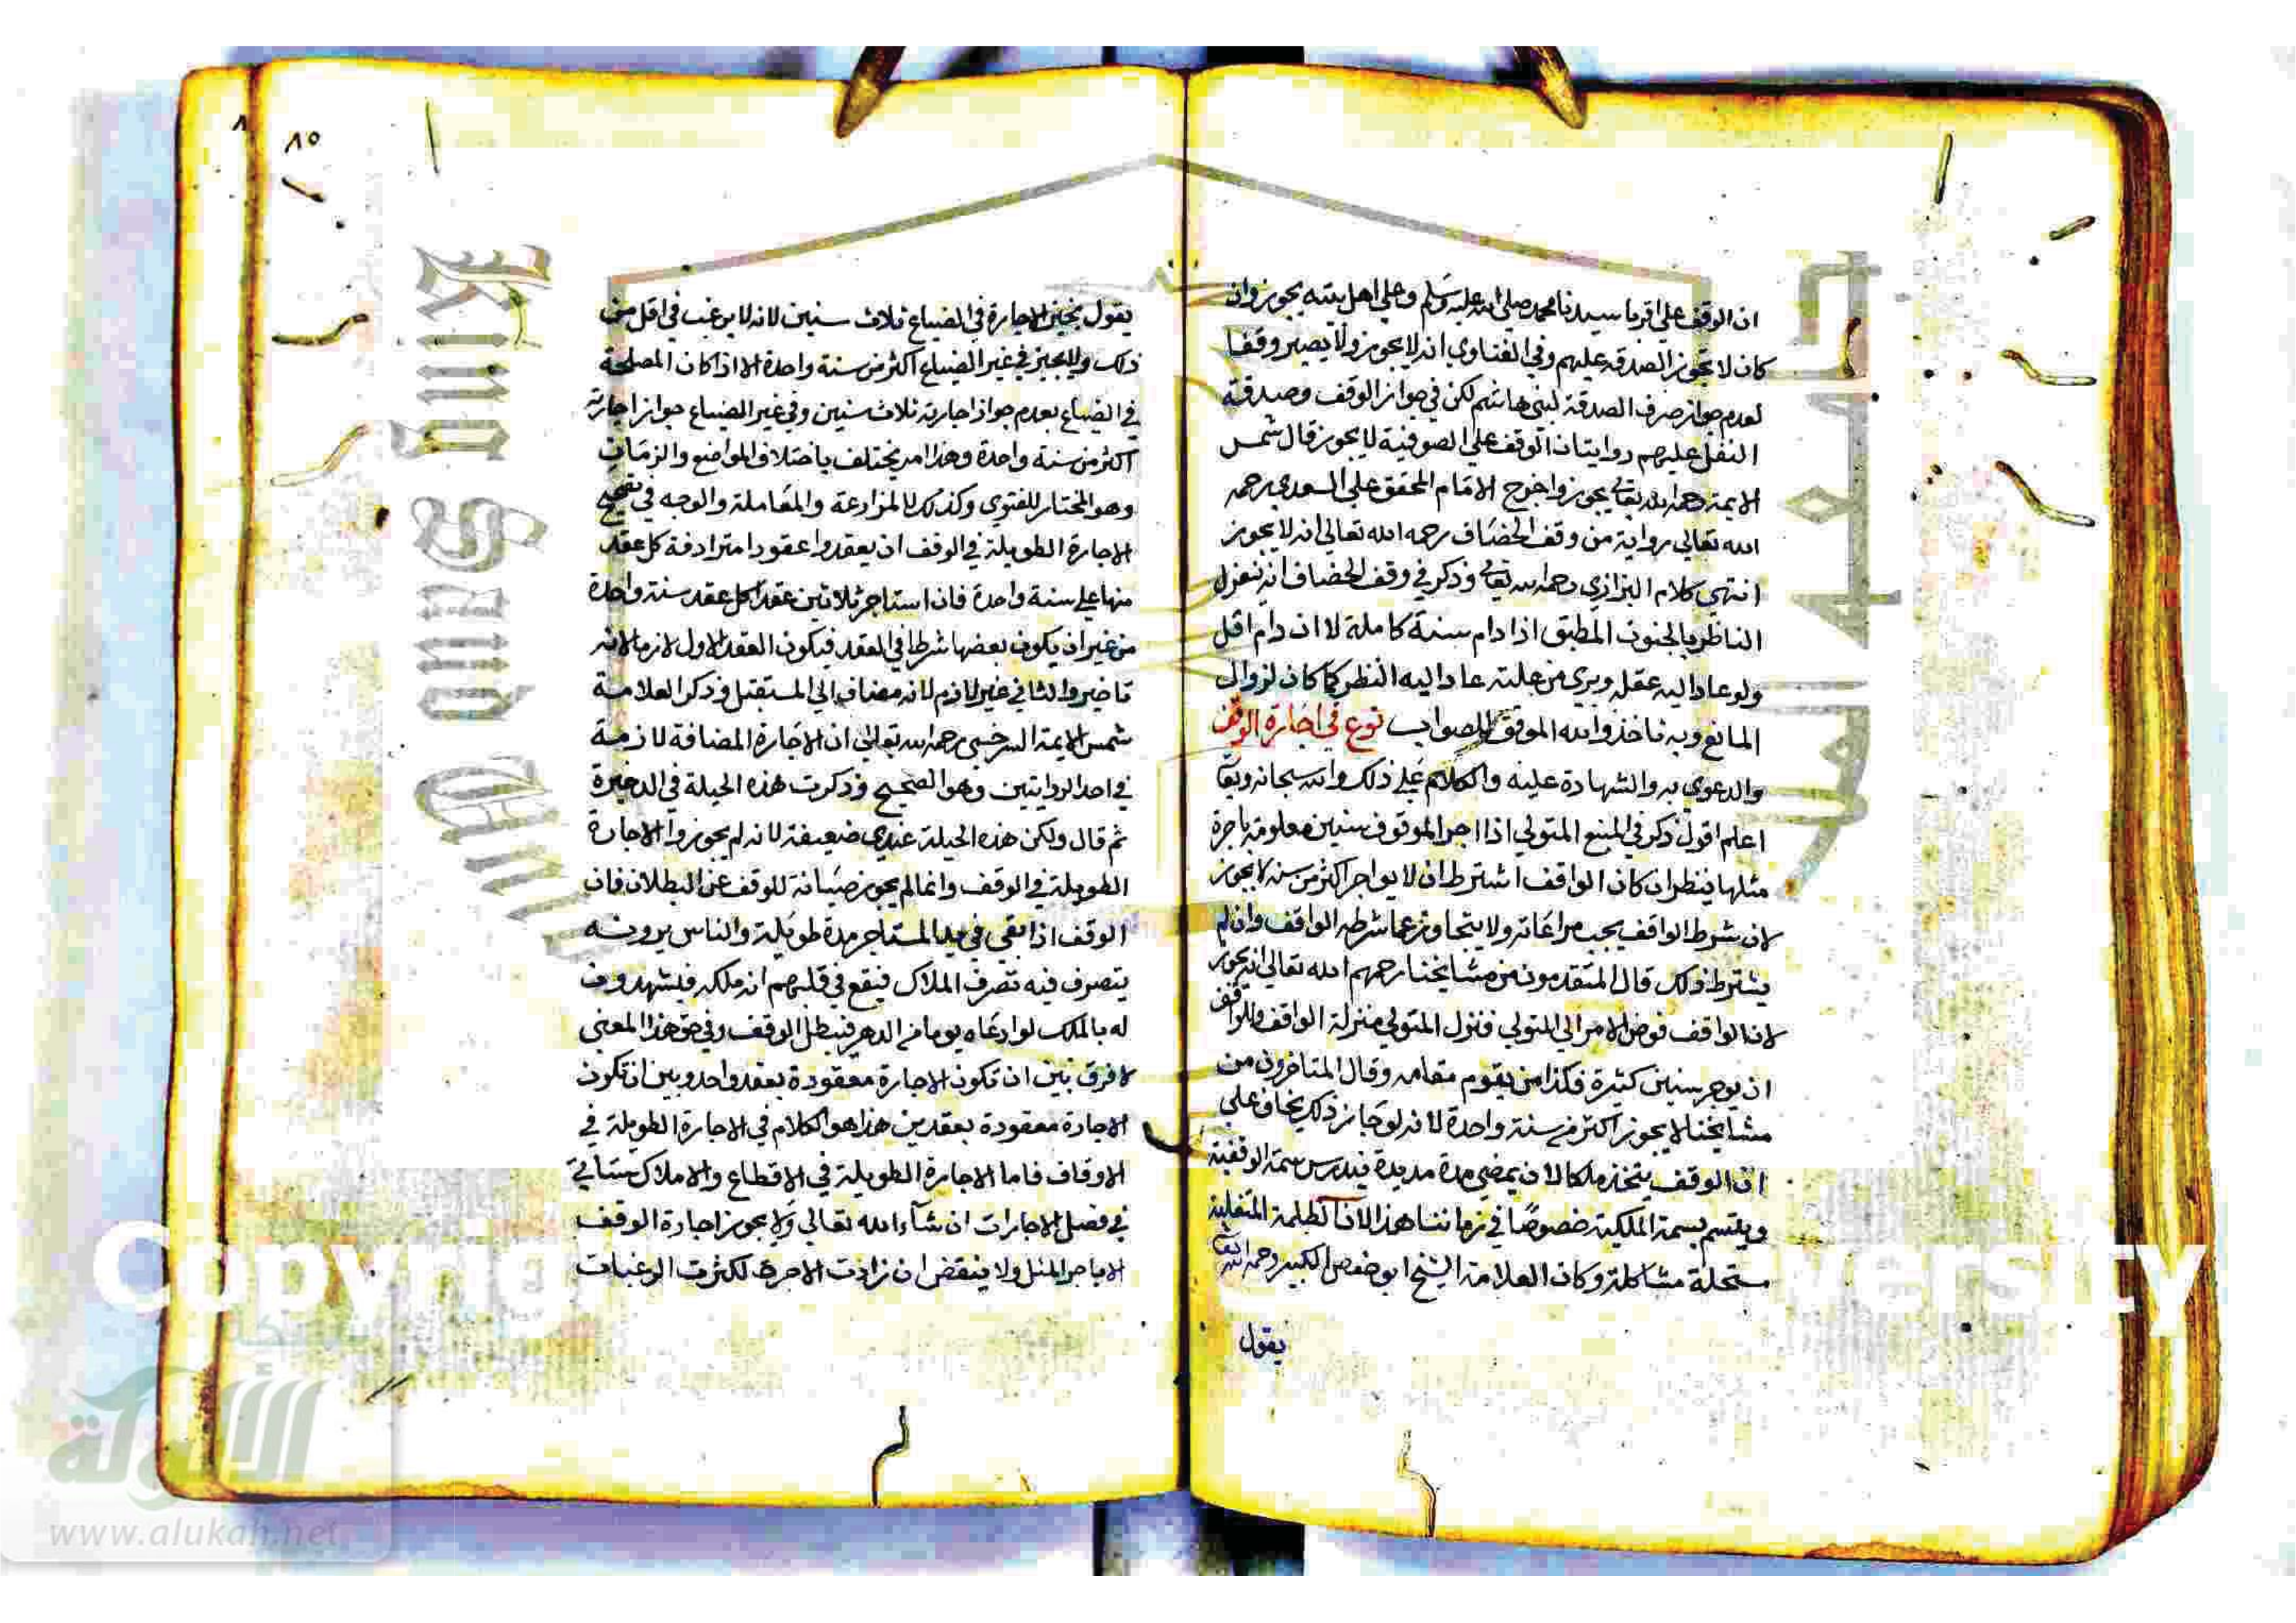 ان الوقف علي اقربا سيدنا محمد صلي الله عليه وسلم وعلي اهل بيته يجوز وان
كان لا تجوز الصدقة عليهم وفي الفتاوي انه لا يجوز ولا يصير وقفا
لعدم جواز صرف الصدقة لبني هاشم لكن في جواز الوقف وصدقة
النفل عليهم روايتان الوقف علي الصوفية لا يجوز قال شمس
الايمة رحمه الله تعالي يجوز واخرج الامام المحقق علي السعدي رحمه
الله تعالي رواية من وقف الخصاف رحمه الله تعالي انه لا يجوز
انتهي كلام البزازي رحمه الله تعالي وذكر في وقف الخصاف انه ينعزل
الناظر بالجنون المطبق اذا دام سنة كاملة لا ان دام اقل
ولو عاد اليه عقله وبري من علته عاد اليه النظر كما كان لزوال
المانع وبه ناخذ والله الموفق للصواب نوع في اجارة الوقف
والدعوي به والشهادة عليه والكلام علي ذلك والله سبحانه وتعا
اعلم اقول ذكر في المنبع المتولي اذا اجر الموقوف سنين معلومة باجرة
مثلها ينظر ان كان الواقف اشترط ان لا يواجر اكثر من سنة لا يجوز
لان شرط الواقف يجب مراعاته ولا يتجاوز عما شرطه الواقف وان لم
يشترط ذلك قال المتقدمون من مشايخنا رحمهم الله تعالي انه يجوز
لان الواقف فوض الامر الي المتولي فنزل المتولي منزلة الواقف وللواقف
ان يوجر سنين كثيرة فكذا من يقوم مقامه وقال المتاخرون من
مشايخنا لا يجوز اكثر من سنة واحدة لانه لو جاز ذلك يخاف علي
ان الوقف يتخذ ملكا لان بمضي مدة مديدة يندرس سمة الوقفية
ويتسم بسمة الملكية خصوصا في زماننا هذا لان الظلمة المتغلبة
مستحلة وكان العلامة الشيخ ابو حفص الكبير رحمه الله تعا
يقول
٨٥
يقول يجيز الاجارة في الضياع ثلاث سنين لانه لا يرغب في اقل من
ذلك ولا يجيز في غير الضياع اكثر من سنة واحدة الا اذا كان المصلحة
في الضياع بعدم جواز اجارته ثلاث سنين وفي غير الضياع جواز اجارته
اكثر من سنة واحدة وهذا امر يختلف باختلاف المواضع والزمان
وهو المختار للفتوي وكذلك المزارعة والمعاملة والوجه في تصحيح
الاجارة الطويلة في الوقف ان يعقدوا عقودا مترادفة كل عقد
منها علي سنة واحدة فان استاجر ثلاثين عقدا كل عقد سنة واحدة
من غير ان يكون بعضها شرطا في العقد فيكون العقد الاول لازما لانه
ناجز والثاني غير لازم لانه مضاف الي المستقبل وذكر العلامة
شمس الايمة السرخسي رحمه الله تعالي ان الاجارة المضافة لازمة
في احد الروايتين وهو الصحيح وذكرت هذه الحيلة في الدخيرة
ثم قال ولكن هذه الحيلة عندي ضعيفة لانه لم يجوزوا الاجارة
الطويلة في الوقف وانما لم يجوز صيانة للوقف عن البطلان فان
الوقف اذا بقي في يد المستاجر مدة طويلة والناس يرونه
يتصرف فيه تصرف الملاك فيقع في قلبهم انه ملكه فيشهدون
له بالملك لو ادعاه يوما من الدهر فيبطل الوقف وفي حق هذا المعني
لا فرق بين ان تكون الاجارة معقودة بعقد واحد وبين ان تكون
الاجارة معقودة بعقدين هذا هو الكلام في الاجارة الطويلة في
الاوقاف فاما الاجارة الطويلة في الاقطاع والاملاك ستاتي
في فصل الاجارات ان شاء الله تعالي ولا يجوز اجارة الوقف
الا باجر المثل ولا ينقض ان زادت الاجرة لكثرت الرغبات
King Saud
Copyrig
versity
الألوكة
www.alukah.net